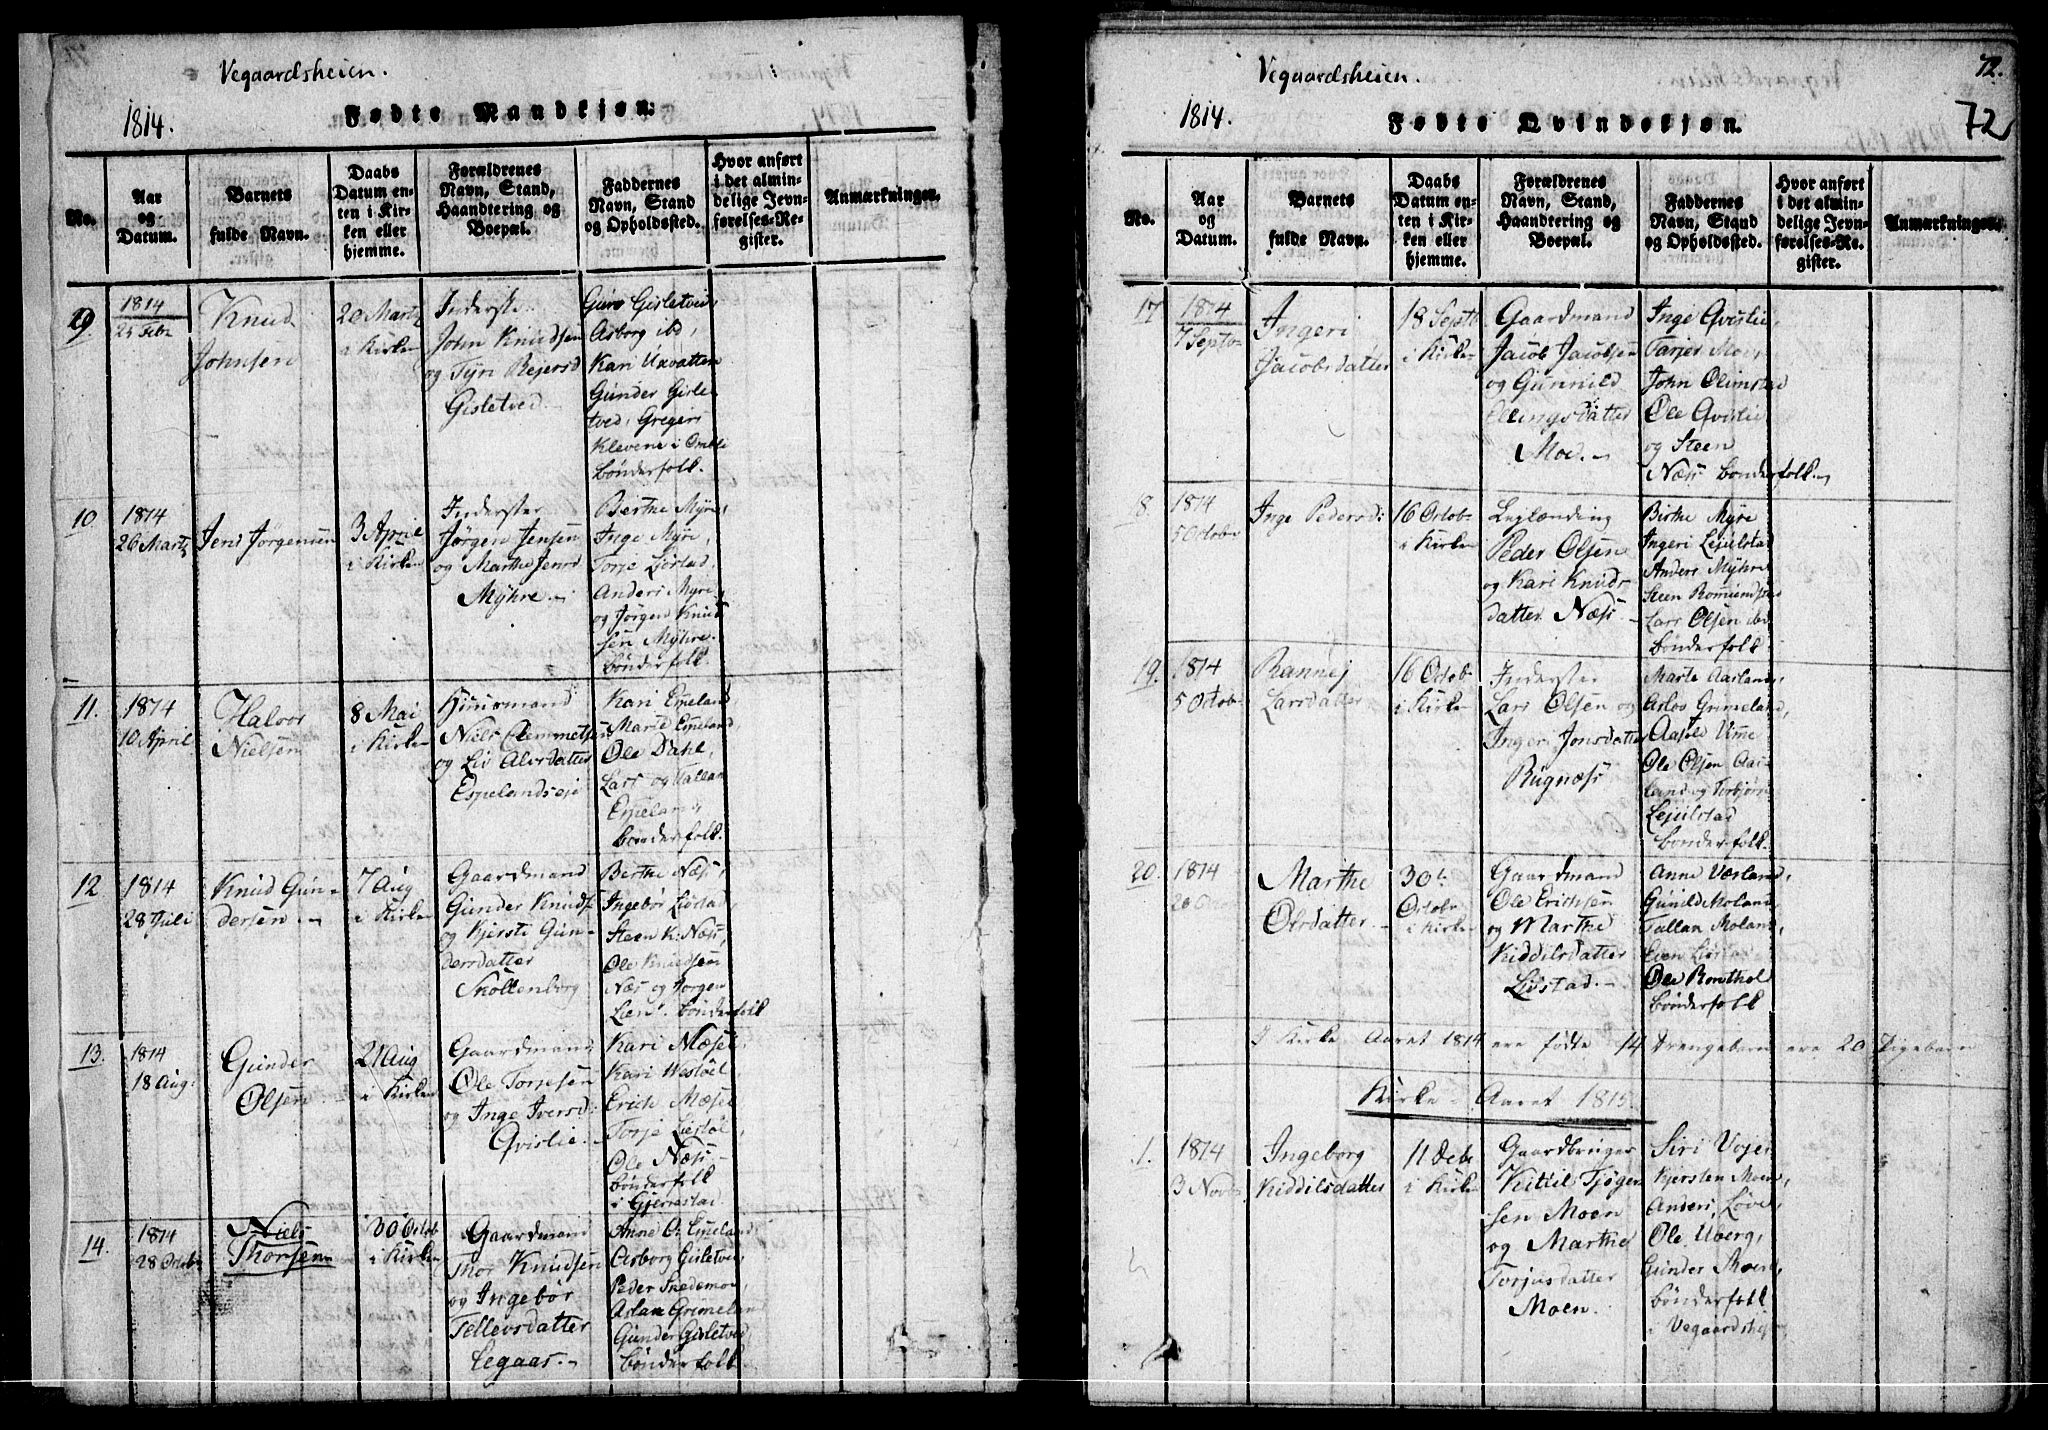 Vegaardsheien.
1814.
Fødte Mandkjøn.
No.
Aar
og
Datum.
Barnets
fulde Navn.
Daabs
Datum en-
ten i Kir-
ken eller
hjemme.
Forældrenes
Navn, Stand,
Haandtering og
Boepæl.
Faddernes
Navn, Stand
og Opholdssted.
Hvor anført
i det almin-
delige Jevn-
førelses-Re-
gister.
Anmærkninger.
9.
1814
Febr
Knud
Johnsen
20 Martz
i Kirken
Inderste
John Knudsen
og Tyri Reiersd
Gisletved.
Guro Gisletved,
Asborg ibd,
Kari Uavatten
Gunder Gisle-
tved, Gregers
Klevene i Omlie
bønderfolk.
10
1814
26 Martz
Jens Jørgensen
3 April
i Kirken
Inderster
Jørgen Jensen
og Marthe Jensd
Myhre.
Berthe Myre,
Inge Myre,
Torje Liøstad,
Anders Myre,
og Jørgen Knud
sen Myhre.
bønderfolk.
11.
1814
10 April
Halvor
Nielsen
8 Mai
i Kirken
Huusmand
Niels Clemmetsen
og Liv Alvsdatter
Espelandseie
Kari Espeland
Marte Espeland,
Ole Dahl,
Lars og Tallan
Espeland,
bønderfolk.
12
1814
28 Juli
Knud Gun-
dersen
7 Aug
i Kirken
Gaardmand
Gunder Knuds
og Kjersti Gun-
dersdatter
Skottenborg
Berthe Næss,
Ingebør Liøstad,
Steen K. Næss,
Ole Knudsen
Næs og Jørgen
Lien. bønderfolk
13.
1814
18 Aug:
Gunder
Olsen
21 Aug
i Kirken
Gaardmand
Ole Torjesen
og Inge Iversd:
Qvislie.
Kari Mæsel,
Kari Westøel,
Erich Mæsel
Torje Liestøl,
Ole Næss
bønderfolk
i Gjerrestad
14.
1814
28 Octobr
Niels
Thorsen
30 Octob
i Kirken
Gaardmand
Thor Knudsen
og Ingebør
Tellevsdatter
Legaar.
Anne O. Espeland
Asborg Gisletved,
Peder Snedemoe,
Aslan Grimeland
Gunder Gisletved
bønderfolk.
Vegaardsheien.
1814.
Fødte Qvindekjøn.
72.
72
No.
Aar
og
Datum.
Barnets
fulde Navn.
Daabs
Datum en-
ten i Kir-
ken eller
hjemme.
Forældrenes
Navn, Stand,
Haandtering og
Boepæl.
Faddernes
Navn, Stand
og Opholdssted.
Hvor anført
i det almin-
delige Jevn-
førelses-Re-
gister.
Anmærkninger.
17
1814
7 Septbr
Ingeri
Jacobsdatter
18 Septb
i Kirken
Gaardmand
Jacob Jacobsen
og Gunnild
Ellingsdatter
Moe.
Inge Qvislie,
Tarjer Moe,
John Olimstad
Ole Qvislie
og Steen
Næss bønderfolk.
8
1814
5 Octobr
Inge Pedersd:
16 Octob
i Kirken
Leglænding
Peder Olsen
og Kari Knuds
datter Næss
Birthe Myre
Ingeri Lejulstad
Anders Myhre
Steen Romundstad
Lars Olsen ibd
bønderfolk.
19.
1814
5 Octobr
Rannej
Larsdatter
16 Octob
i Kirken
Inderster
Lars Olsen og
Inger Jonsdatter
Rugnæss
Marte Aasland,
Aslov Grimeland,
Aasold Ume
Ole Olsen Aas-
land og Torbjørn
Lejulstad
bønderfolk.
20.
1814
Marthe
Olsdatter.
30te
Octobr
i Kirken
Gaardmand
Ole Erichsen
og Marthe
Kiddilsdatter
Liøstad.
Anne Væsland,
Gunild Moland,
Tallan Moland,
Even Liøstad
Ole Ramthol
bønderfolk
I Kirke Aaret 1814 ere fødte 14 Drengebørn ere 20 Pigebørn
Kirke-Aaret 1815.
1.
1814
3 Novbr
Ingeborg
Kiddilsdatter
11 Decbr
i Kirken
Gaardbruger
Kittil Tjøger
sen Moen
og Marthe
Torjusdatter
Moen.
Siri Vojer
Kjersten Moen,
Anders Løve,
Ole Uberg,
Gunder Moen,
bønderfolk
i Vegaardshej